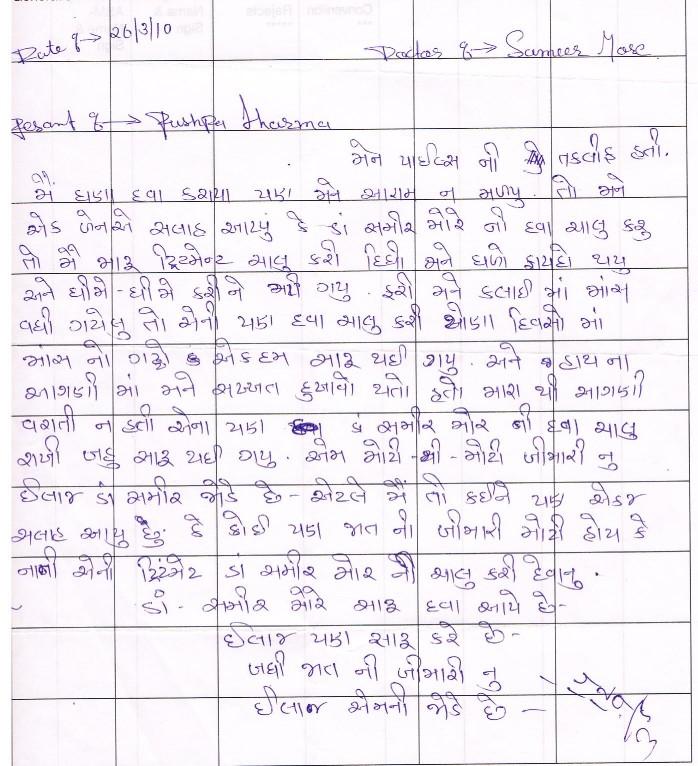 Date :→ 26/3/10 Doctor :→ Sameer More
:→ Pushpa Sharma
મેને પાઈલ્સ ની તકલીફ હતી.
મેં ઘણા દવા કરાયા પણ મને આરામ ન મળ્યુ. તો મને
એક બેનએ સલાહ આપ્યું કે ડૉ સમીર મોરે ની દવા ચાલુ કરુ
તો મેં મારૂ ટ્રિટમેન્ટ ચાલુ કરી દિધી મને ઘણો ફાયદો થયુ
અને ધીમે-ધીમે કરી ને મટી ગયુ. ફરી મને કલાઈ માં માંસ
વધી ગયેલુ તો એની પણ દવા ચાલુ કરી થોણા દિવસો માં
માંસ નો એકદમ સારૂ થઈ ગયુ. અને હાથ ના
આગણી માં મને સખ્ખત દુખાવો થતો હતો મારા થી આગણી
વરાતી ન હતી એના પણ ડૉ સમીર મોર ની દવા ચાલુ
રાખી બહુ સારૂ થઈ ગયુ. એમ મોટી-થી-મોટી બીમારી નુ
ઈલાજ ડૉ સમીર જોડે છે- એટલે મેં તો કઈને પણ એકજ
સલાહ આપુ છું કે કોઈ પણ જાત ની બીમારી મોટી હોય કે
નાની એની ટ્રિટમેટ ડૉ સમીર મોર ની ચાલુ કરી દેવાનુ.
ડૉ. સમીર મોરે સારૂ દવા આપે છે-
ઈલાજ પણ સારૂ કરે છે-
બધી જાત ની બીમારી નુ
ઈલાજ એમની જોડે છે-